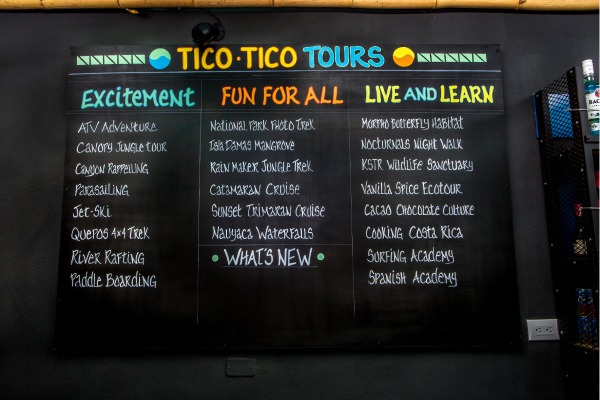 TICO·TICO TOURS
Excitement
ATV Adventure
Canopy Jungle tour
Canyon Rappelling
Parasailing
Jet-Ski
Quepos 4x4 Trek
River Rafting
Paddle Boarding
FUN FOR ALL
National Park Photo Trek
Isla Damas Mangrove
Rain Maker Jungle Trek
Catamaran Cruise
Sunset Trimaran Cruise
Nauyaca Waterfalls
• WHAT'S NEW •
LIVE AND LEARN
Morpho Butterfly Habitat
Nocturnals Night Walk
KSTR Wildlife Sanctuary
Vanilla Spice Ecotour
Cacao Chocolate Culture
Cooking Costa Rica
Surfing Academy
Spanish Academy